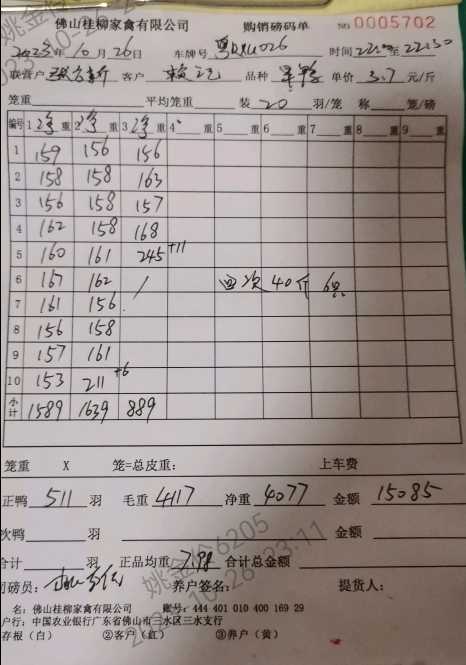 佛山桂柳家禽有限公司 购销磅码单 NO 0005702
2023年10月26日 车牌号 时间 至22:30
联营户 客户 品种 单价 3.7 元/斤
笼重 平均笼重 装 20 羽/笼 称 笼/磅
编号 1 净 重 2 净 重 3 净 重 4 重 5 重 6 重 7 重 8 重 9 重
1 159 156 156
2 158 158 163
3 156 158 157
4 162 158 168
5 160 161 245+11
6 167 162 / 40斤
7 161 156
8 156 158
9 157 161
10 153 211+6
小计 1589 1639 889
笼重 X 笼=总皮重: 上车费
正鸭 511 羽 毛重 4117 净重 4077 金额 15085
次鸭 羽 金额
合计 羽 正品均重 7.98 合计总金额
司磅员: 养户签名: 提货人:
名: 佛山桂柳家禽有限公司 账号: 444 401 010 400 169 29
户行: 中国农业银行广东省佛山市三水区三水支行
存根(白) ②客户(红) ③养户(黄)